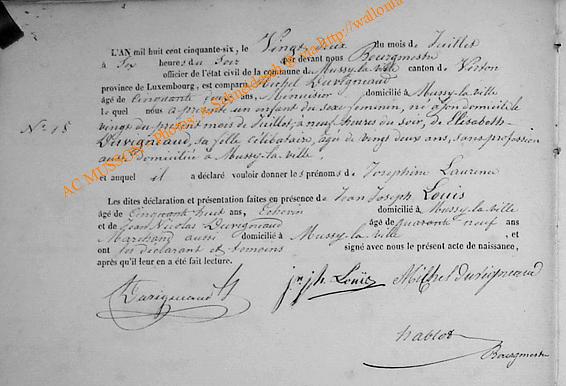 L'AN mil huit cent cinquante-six, le Vingt deux du mois de Juillet
à Six heures du Soir par devant nous Bourgmestre
officier de l'état civil de la commune de Mussy-la-ville canton de Virton
province de Luxembourg, est comparu Michel Duvigneaud
âgé de Cinquante ans, Menuisier domicilié à Mussy-la-ville
le quel nous a présenté un enfant du sexe feminin, né à son domicile
N° 18
vingt du présent mois de Juillet, à neuf heures du soir, de Elisabeth
Duvigneaud, sa fille Célibataire, agée de vingt deux ans, sans profession
aussi domiciliée à Mussy-la-ville
et auquel il a déclaré vouloir donner les prénoms de Joséphine Laurence
Les dites déclaration et présentation faites en présence de Jean Joseph Louis
âgé de Cinquante huit ans, Echevin domicilié à Mussy-la-ville
et de Jean Nicolas Duvigneaud âgé de quarante neuf ans
Marchand aussi domicilié à Mussy-la-ville, et
ont les déclarant et témoins signé avec nous le présent acte de naissance,
après qu'il leur en a été fait lecture.
Duvigneaud
jn jh Louis
Michel duvigneaud
Bourgmestre
AC MUSSON - Photos: A. Schneidesch
via http://wallonia